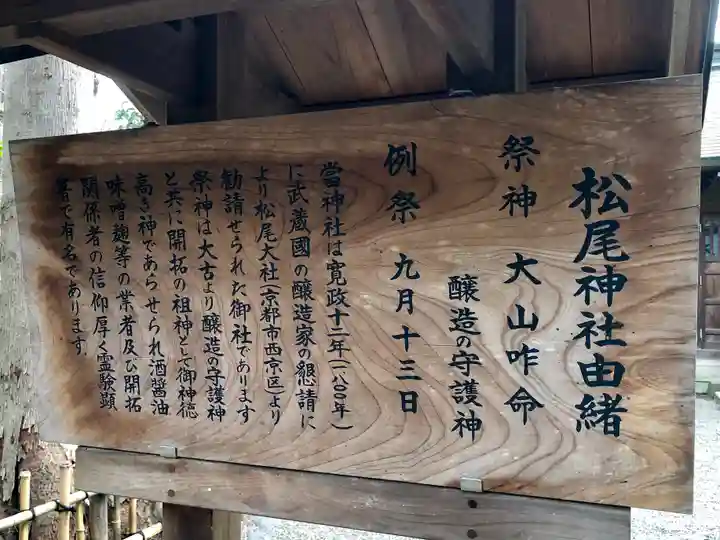 松尾神社由緒
祭神 大山咋命
醸造の守護神
例祭 九月十三日
當神社は寛政十二年(一八〇〇年)
に武蔵國の醸造家の懇請に
より松尾大社(京都市西京区)より
勧請せられた御社であります
祭神は大古より醸造の守護神
と共に開拓の祖神として御神徳
高き神であらせられ酒醤油
味噌麹等の業者及び開拓
関係者の信仰厚く霊験顕
著で有名であります。